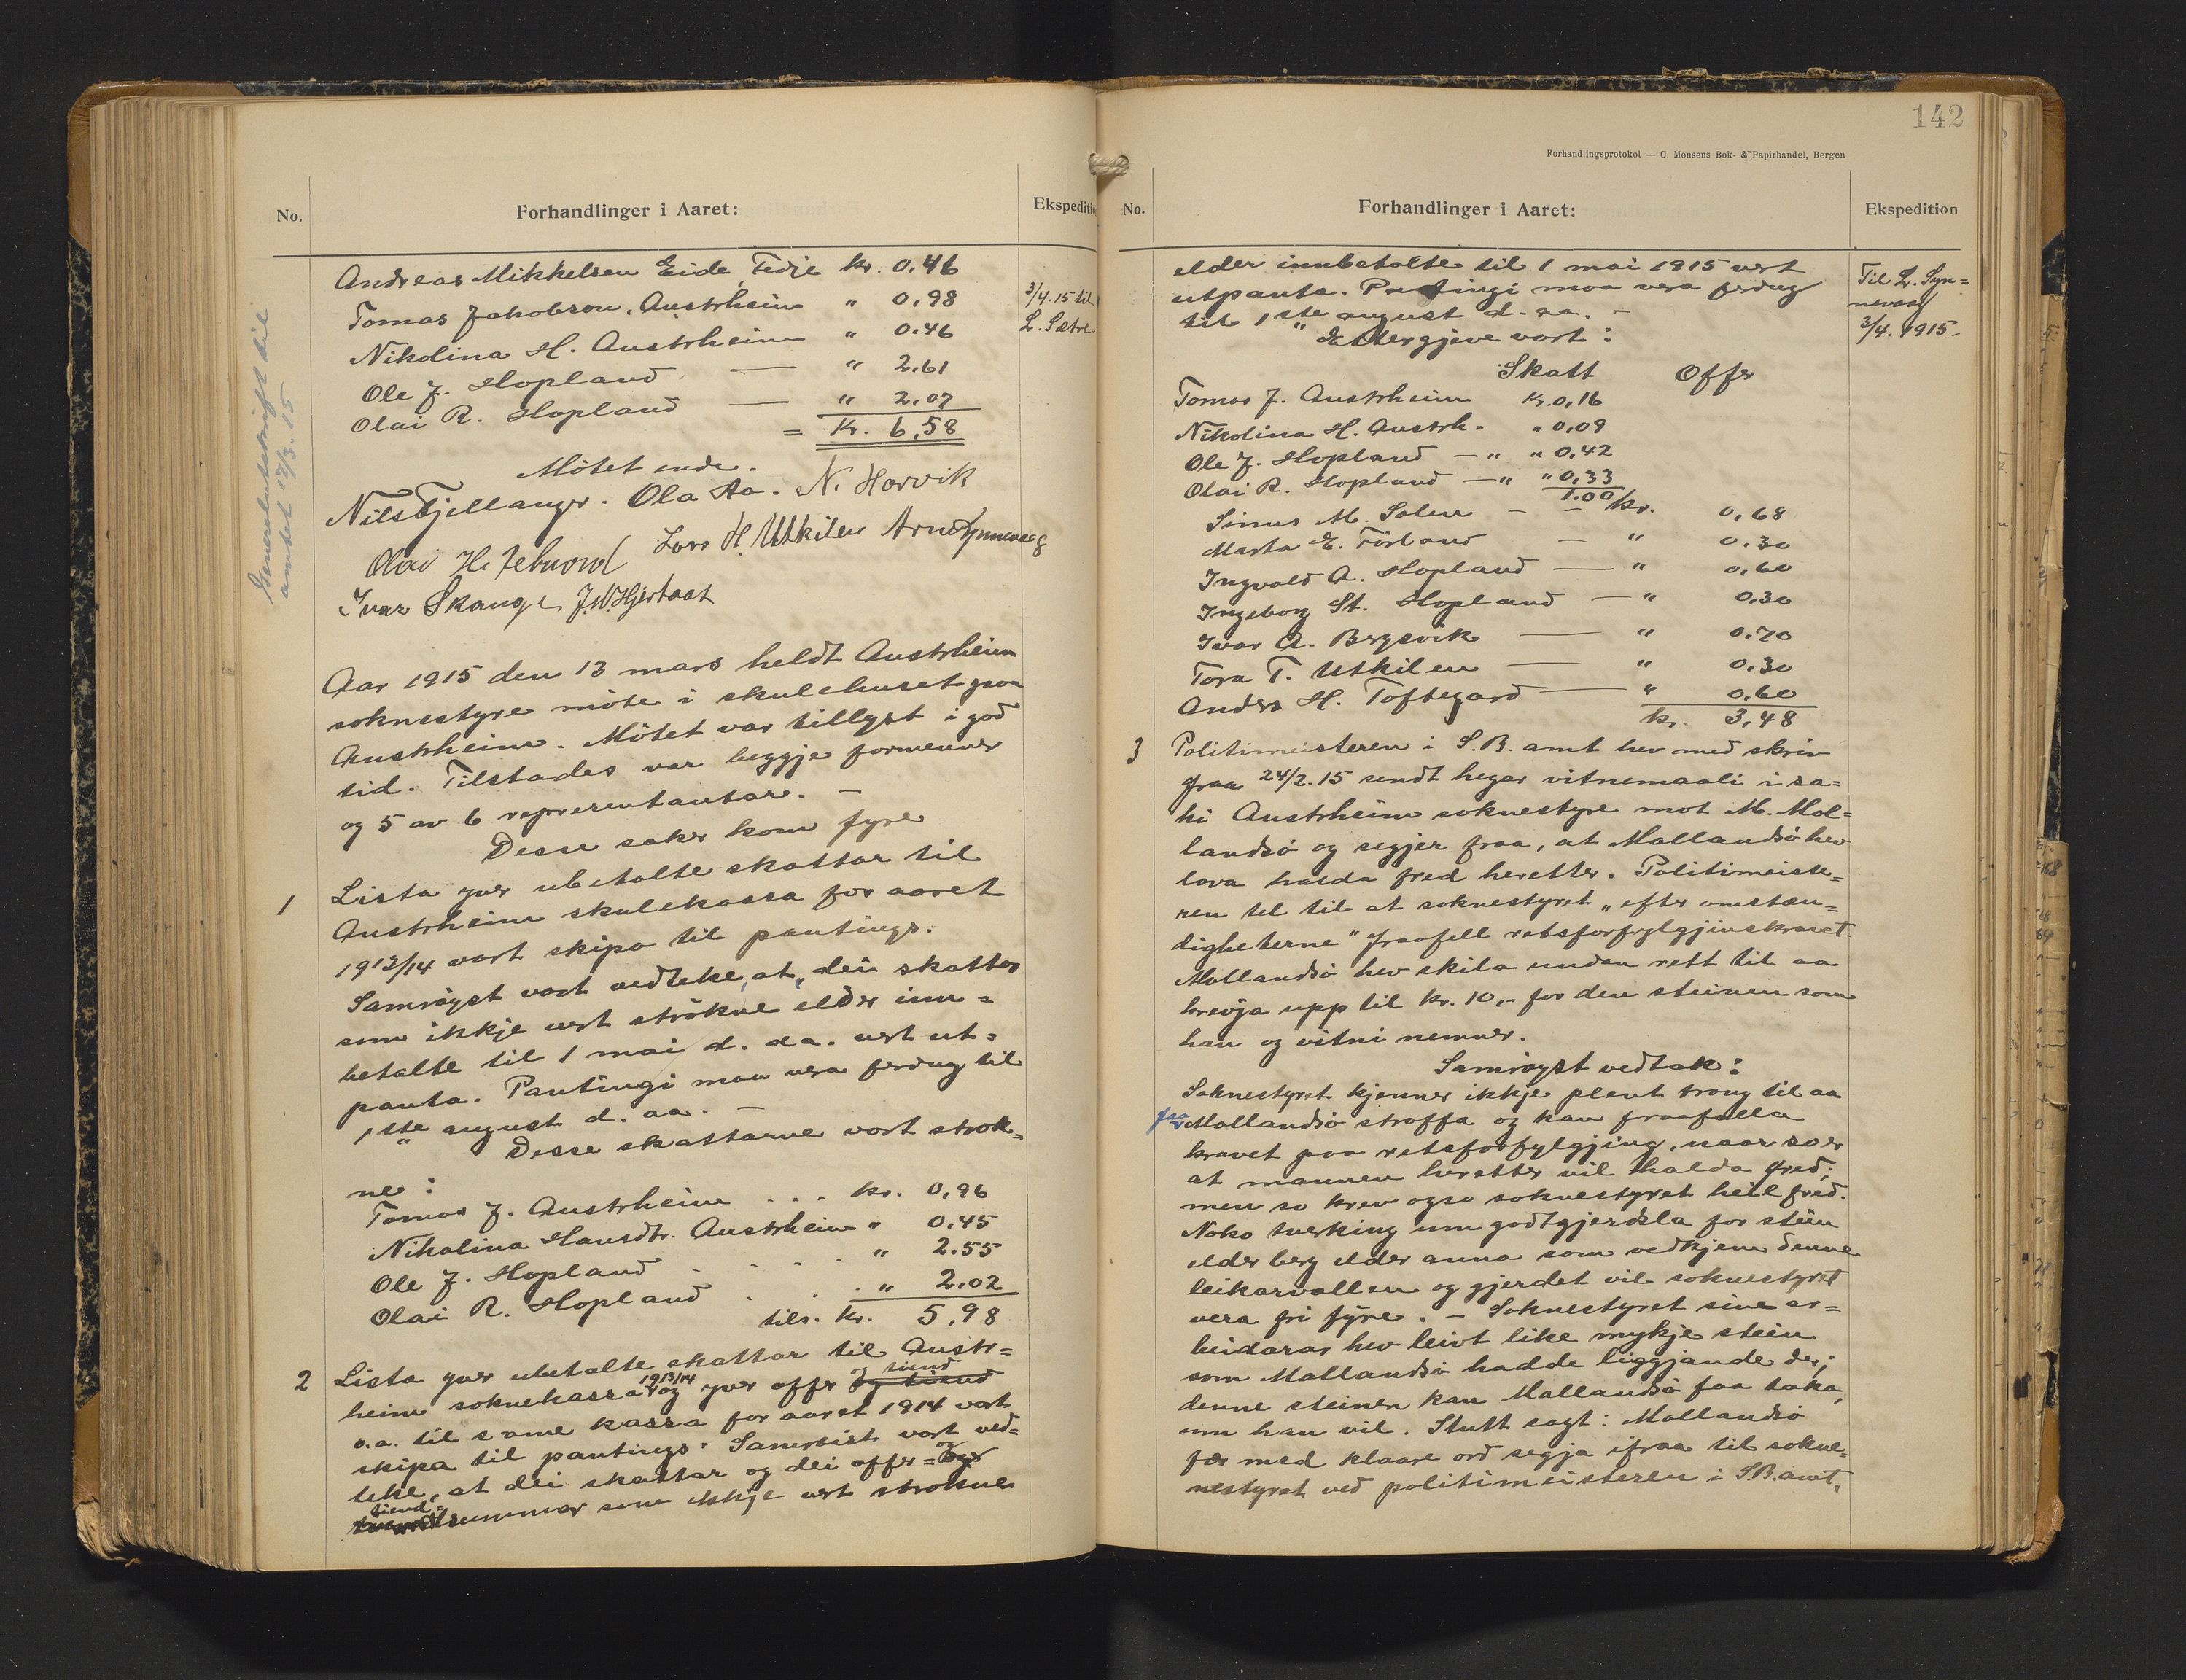 No.
Forhandlinger i Aaret:
Ekspediti
Generalutskrift til
amtet 17/3. 15
Andreas Mikkelsen Eide, Fedje kr. 0,46
Tomas Jakobson, Austrheim " 0,98
3/4. 15 til
Nikolina H. Austrheim " 0.46
L. Sætre.
Ole J. Hopland — " 2,61
Olai R. Hopland — " 2,07
= Kr. 6,58
Møtet ende.
Nils Fjellanger. Ola Aa. N. Horvik
Olai H. Lars H. Utkilen Arne Synnevaag
Ivar Skauge J. W. Hjertaas
Aar 1915 den 13 mars heldt Austrheim
soknestyre møte i skulehuset paa
Austrheim. Møtet var tillyst i god
tid. Tilstades var beggje formenner
og 5 av 6 representantar. —
Desse saker kom fyre
1 Lista yver ubetalte skattar til
Austrheim skulekassa for aaret
1913/14 vart skipa til pantings.
Samrøyst vart vedteke, at, dei skattar
som ikkje vert strøkne elder inn=
betalte til 1 mai d. aa. vert ut=
panta. Pantingi maa vera ferdug til
1ste august d. aa. —
Desse skattarne vart strok=
ne:
Tomas J. Austrheim . . . kr. 0,96
Nikolina Hansdtr. Austrheim " 0,45
Ole J. Hopland . . . . " 2.55
Olai R. Hopland . . . " 2,02
tils. kr. 5,98
2 Lista yver ubetalte skattar til Austr=
heim soknekassa 1913/14 og yver offer og tiend og tiend
o.a. til same kassa for aaret 1914 vart
skipa til pantings. Samrøist vart ved=
teke, at dei skattar og dei offer= og
tiend= summar som ikkje vert strokne
142
Forhandlingsprotokol — C. Monsens Bok- & Papirhandel, Bergen
No.
Forhandlinger i Aaret:
Ekspedition
elder innbetalte til 1 mai 1915 vert
utpanta. Pantingi maa vera ferdug
til 1ste august d. aa. —
Til L. Syn=
nevaag
3/4. 1915.
Ettergjeve vart:
Skatt Offer
Tomas J. Austrheim Kr. 0,16
Nikolina H. Austrh. " 0,09
Ole J. Hopland — " " 0,42
Olai R. Hopland — " " 0,33
1.00
Simus M. Solen — — kr. 0,68
Marta E. Førland — " 0.30
Ingvald A. Hopland — " 0,60
Ingeborg St. Hopland — " 0,30
Ivar A. Bergsvik — " 0.70
Tora T. Utkilen — " 0,30
Anders H. Toftegard — " 0,60
kr. 3,48
3 Politimeisteren i S. B. amt hev med skriv
fraa 24/2. 15 sendt hegar vitnemaali i sa=
ki Austrheim soknestyre mot M. Mol=
landsø og segjer fraa, at Mollandsø hev
lova halda fred heretter. Politimeiste=
ren tel til at soknestyret „efter omstæn=
digheterne" fraafell retsforfylgjinskravet.
Mollandsø hev skila undan rett til aa
krevja upp til kr. 10,- for den steinen som
han og vitni nemner.
Samrøyst vedtak:
Soknestyret kjenner ikkje plent trong til aa
faa Mollandsø straffa og kan fraafalla
kravet paa retsforfylgjing, naar so er
at mannen heretter vil halda fred;
men so krev ogso soknestyret heil fred.
Noko tverking um godtgjerdsla for stein
elder berg elder anna som vedkjem denne
leikarvollen og gjerdet vil soknestyret
vera fri fyre. — Soknestyret sine ar=
beidarar hev leivt like mykje stein
som Mollandsø hadde liggjande der;
denne steinen kan Mollandsø faa taka,
um han vil. Stutt sagt: Mollandsø
fær med klaare ord segja ifraa til sokne=
nestyret ved politimeisteren i S. B. amt,